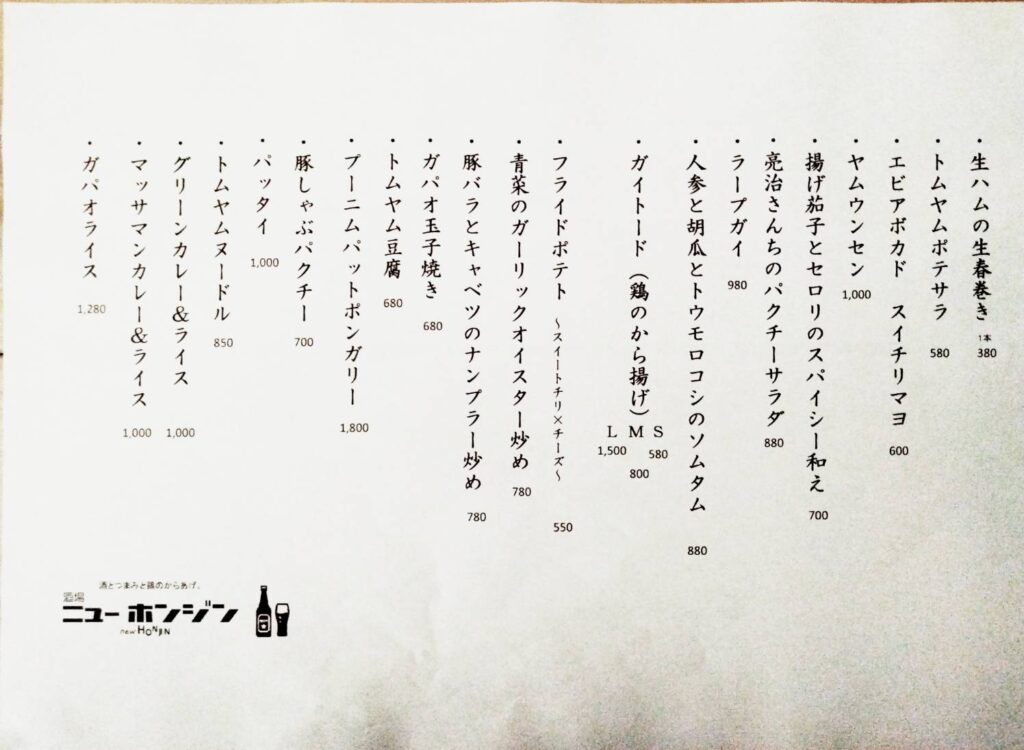 ・生ハムの生春巻き 1本 380
・トムヤムポテサラ 580
・エビアボカド スイチリマヨ 600
・ヤムウンセン 1,000
・揚げ茄子とセロリのスパイシー和え 700
・亮治さんちのパクチーサラダ 880
・ラープガイ 980
・人参と胡瓜とトウモロコシのソムタム 880
・ガイトード(鶏のから揚げ) S 580 M 800 L 1,500
・フライドポテト ~スイートチリ×チーズ~ 550
・青菜のガーリックオイスター炒め 780
・豚バラとキャベツのナンプラー炒め 780
・ガパオ玉子焼き 680
・トムヤム豆腐 680
・プーニムパットポンガリー 1,800
・豚しゃぶパクチー 700
・パッタイ 1,000
・トムヤムヌードル 850
・グリーンカレー&ライス 1,000
・マッサマンカレー&ライス 1,000
・ガパオライス 1,280
酒とつまみと鶏のからあげ。
酒場
ニューホンジン
new HONJIN